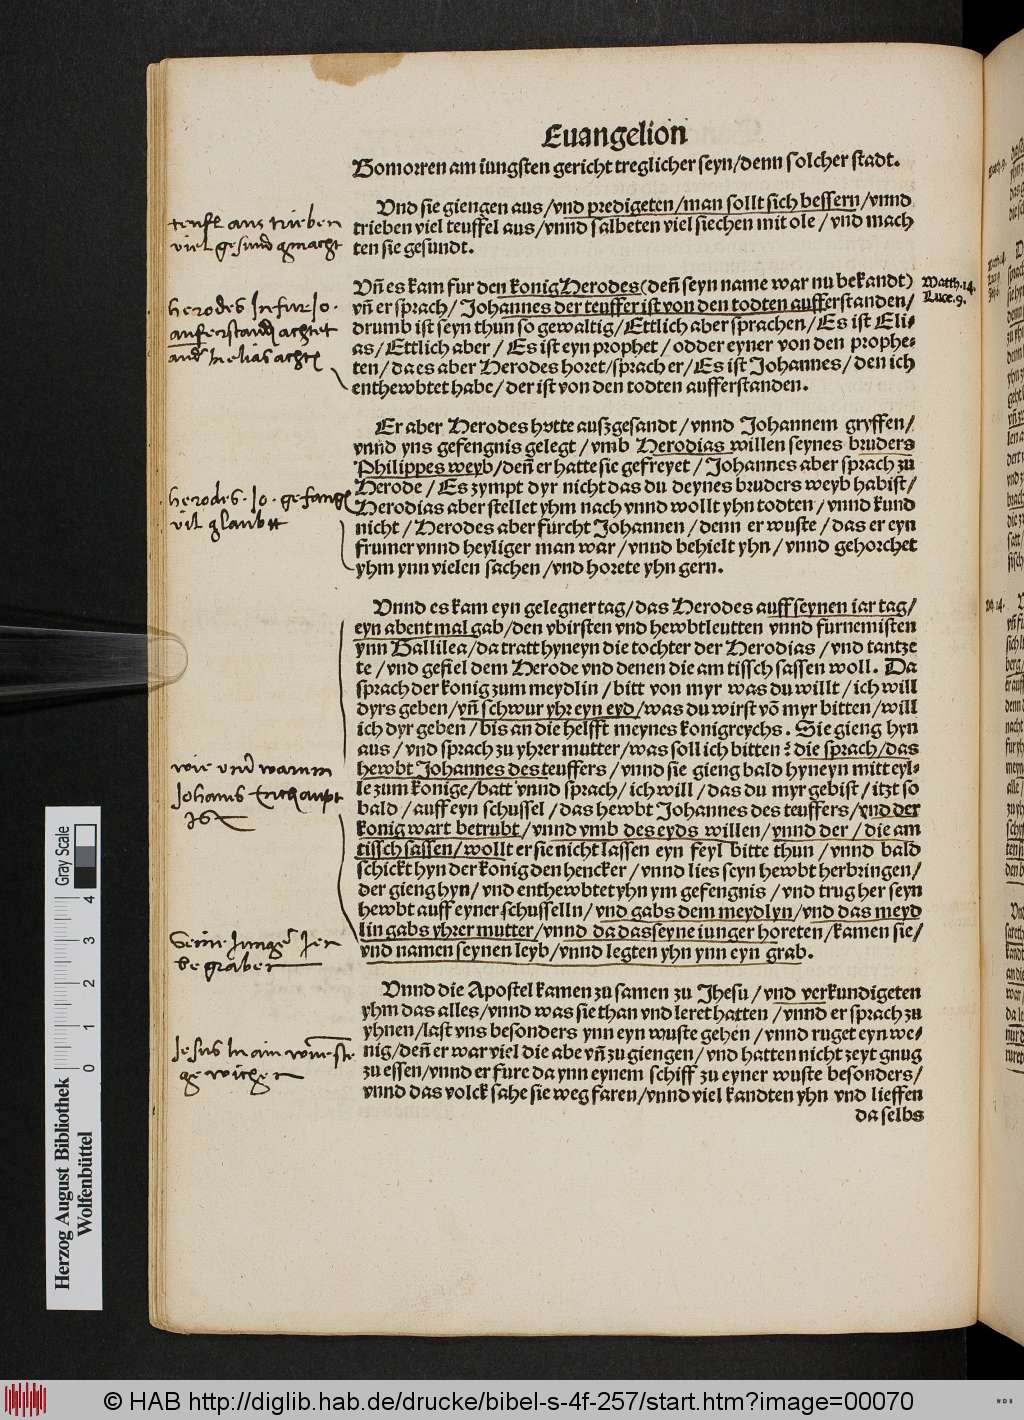 Euangelion
Gomorren am iungsten gericht treglicher seyn/denn solcher stadt.
Vnd sie giengen aus/vnd predigeten/man sollt sich bessern/vnnd
trieben viel teuffel aus/vnnd salbeten viel siechen mit ole/vnd mach
ten sie gesundt.
teufl aus trieben
viel gesund gmacht
Vñ es kam fur den konig Herodes (deñ seyn name war nu bekandt)
vñ er sprach/Johannes der teuffer ist von den todten aufferstanden/
drumb ist seyn thun so gewaltig/Ettlich aber sprachen/Es ist Eli-
as/Ettlich aber/Es ist eyn prophet/odder eyner von den prophe-
ten/da es aber Herodes horet/sprach er/Es ist Johannes/den ich
enthewbtet habe/der ist von den todten aufferstanden.
Matth.14.
Luce.9.
herodes In fur Jo.
aufferstanden achtet
Er aber Herodes hatte auszgesandt/vnnd Johannem gryffen/
vnnd yns gefengnis gelegt/vmb Herodias willen seynes bruders
Philippes weyb/deñ er hatte sie gefreyet/Johannes aber sprach zu
Herode/Es zympt dyr nicht das du deynes bruders weyb habist/
Herodias aber stellet yhm nach vnnd wollt yhn todten/vnnd kund
nicht/Herodes aber furcht Johannen/denn er wuste/das er eyn
frumer vnnd heyliger man war/vnnd behielt yhn/vnnd gehorchet
yhm ynn vielen sachen/vnd horete yhn gern.
herodes. Jo. gefangen
vil glaubt
Vnnd es kam eyn gelegner tag/das Herodes auff seynen iar tag/
eyn abent mal gab/den vbirsten vnd hewbtleutten vnnd furnemisten
ynn Gallilea/da tratt hyneyn die tochter der Herodias/vnd tantze
te/vnd gefiel dem Herode vnd denen die am tissch sassen woll. Da
sprach der konig zum meydlin/bitt von myr was du willt/ich will
dyrs geben/vñ schwur yhr eyn eyd/was du wirst võ myr bitten/will
ich dyr geben/bis an die helfft meynes konigreychs. Sie gieng hyn
aus/vnd sprach zu yhrer mutter/was soll ich bitten? die sprach/das
hewbt Johannes des teuffers/vnnd sie gieng bald hyneyn mitt eyl-
le zum konige/batt vnnd sprach/ich will/das du myr gebist/itzt so
bald/auff eyn schussel/das hewbt Johannes des teuffers/vnd der
konig wart betrubt/vnnd vmb des eyds willen/vnnd der/die am
tissch sassen/wollt er sie nicht lassen eyn feyl bitte thun/vnnd bald
schickt hyn der konig den hencker/vnnd lies seyn hewbt herbringen/
der gieng hyn/vnd enthewbtet yhn ym gefengnis/vnd trug her seyn
hewbt auff eyner schusselln/vnd gabs dem meydlyn/vnd das meyd
lin gabs yhrer mutter/vnnd da das seyne iunger horeten/kamen sie/
vnd namen seynen leyb/vnnd legten yhn ynn eyn grab.
wie vnd warumb
Johanns Enthaupt
ist
Seine Junger
begraben
Vnnd die Apostel kamen zu samen zu Jhesu/vnd verkundigeten
yhm das alles/vnnd was sie than vnd leret hatten/vnnd er sprach zu
yhnen/last vns besonders ynn eyn wuste gehen/vnnd ruget eyn we-
nig/deñ er war viel die abe vñ zu giengen/vnd hatten nicht zeyt gnug
zu essen/vnnd er fure da ynn eynem schiff zu eyner wuste besonders/
vnnd das volck sahe sie weg faren/vnnd viel kandten yhn vnd lieffen
da selbs
Jesus In ain wueste
gewichen
Gray Scale
0 1 2 3 4
Herzog August Bibliothek
Wolfenbüttel
© HAB http://diglib.hab.de/drucke/bibel-s-4f-257/start.htm?image=00070